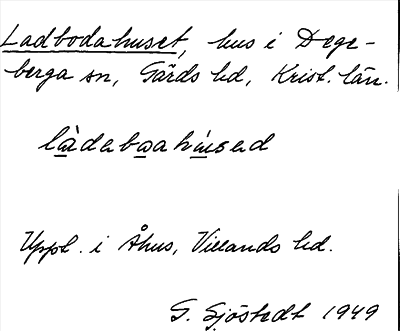 Ladbodahuset, hus i Dege-
berga sn, Gärds hd, Krist. län.
làdeboahúsed
Uppl. i Åhus, Villands hd.
G. Sjöstedt 1949